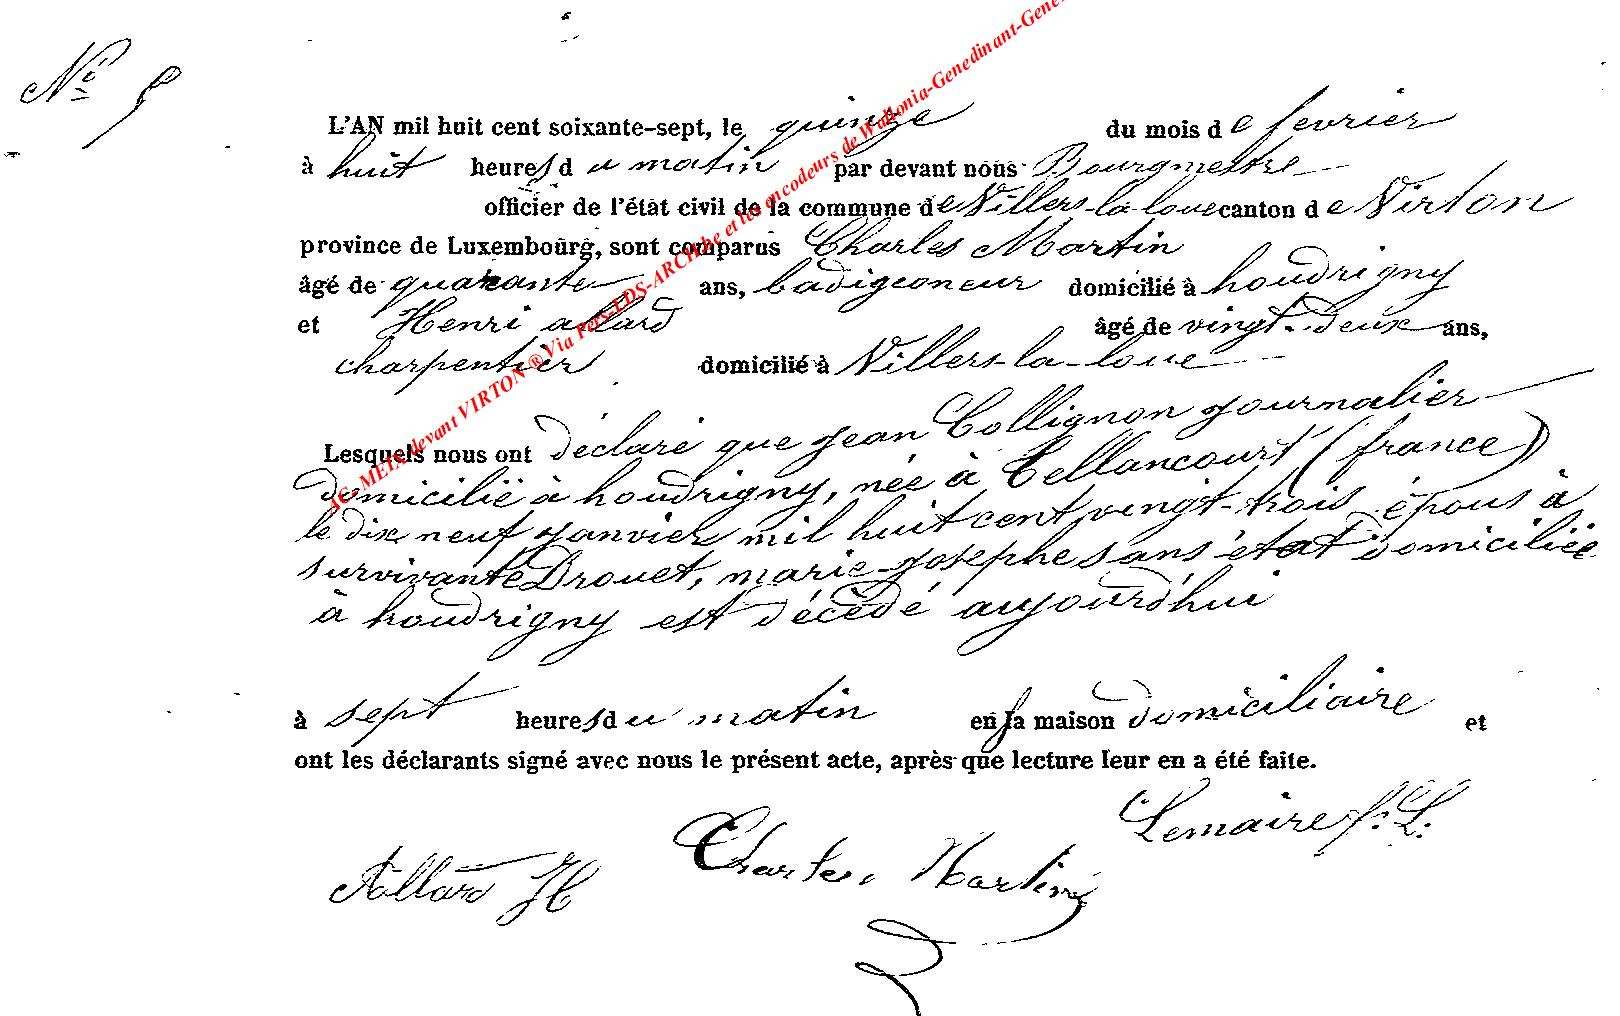 N° 5
L'AN mil huit cent soixante-sept, le quinze du mois de fevrier
à huit heures du matin par devant nous Bourgmestre
officier de l'état civil de la commune de Villers-la-loue canton de Virton
province de Luxembourg, sont comparus Charles Martin
âgé de quarante ans, badigeoneur domicilié à houdrigny
et Henri allard âgé de vingt-deux ans,
charpentier domicilié à Villers-la-loue
Lesquels nous ont déclaré que jean Collignon journalier
domicilié à houdrigny, née à Tellancourt (france)
le dix neuf janvier mil huit cent vingt-trois épous à
survivante Drouet, marie-josephe sans état domiciliée
à houdrigny est décédé aujourd'hui
à sept heures du matin en sa maison domiciliaire et
ont les déclarants signé avec nous le présent acte, après que lecture leur en a été faite.
Lemaire f. L.
Allard H Charles Martin
JC-METS devant VIRTON ® Via Pers-LDS-ARCH.be et les encodeurs de Wallonia-Genedinant-Gene